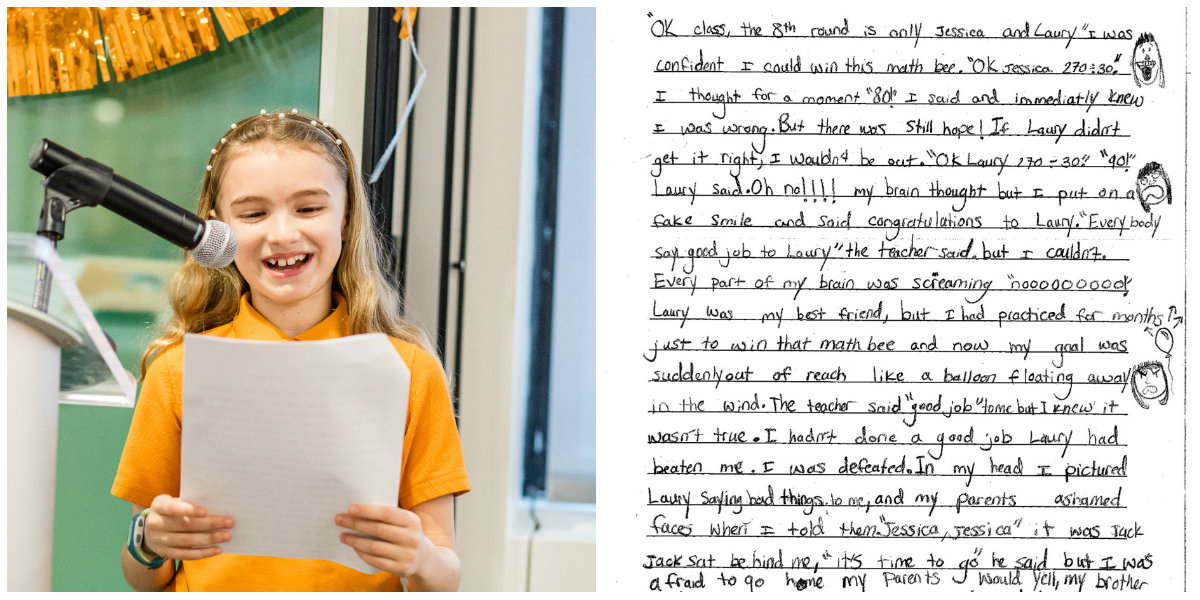 "OK class, the 8th round is only Jessica and Laury" I was
confident I could win this math bee. "OK Jessica 270÷30."
I thought for a moment "80!" I said and immediatly knew
I was wrong. But there was still hope! If Laury didn't
get it right, I wouldn't be out. "OK Laury 270÷30." "90!"
Laury said. Oh no!!!! my brain thought but I put on a
fake smile and said congratulations to Laury. "Everybody
say good job to Laury" the teacher said. but I couldn't.
Every part of my brain was screaming "nooooooooo!"
Laury was my best friend, but I had practiced for months
just to win that math bee and now my goal was
suddenly out of reach like a balloon floating away
in the wind. The teacher said "good job" to me but I knew it
wasn't true. I hadn't done a good job Laury had
beaten me. I was defeated. In my head I pictured
Laury saying bad things to me, and my parents ashamed
faces when I told them. "Jessica, Jessica" it was Jack
Jack sat behind me, "it's time to go" he said but I was
afraid to go home my parents would yell, my brother